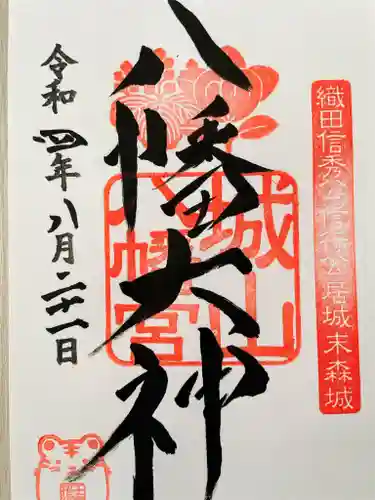 織田信秀公信行公居城末森城
八幡大神
城山
八幡宮
令和四年八月二十一日